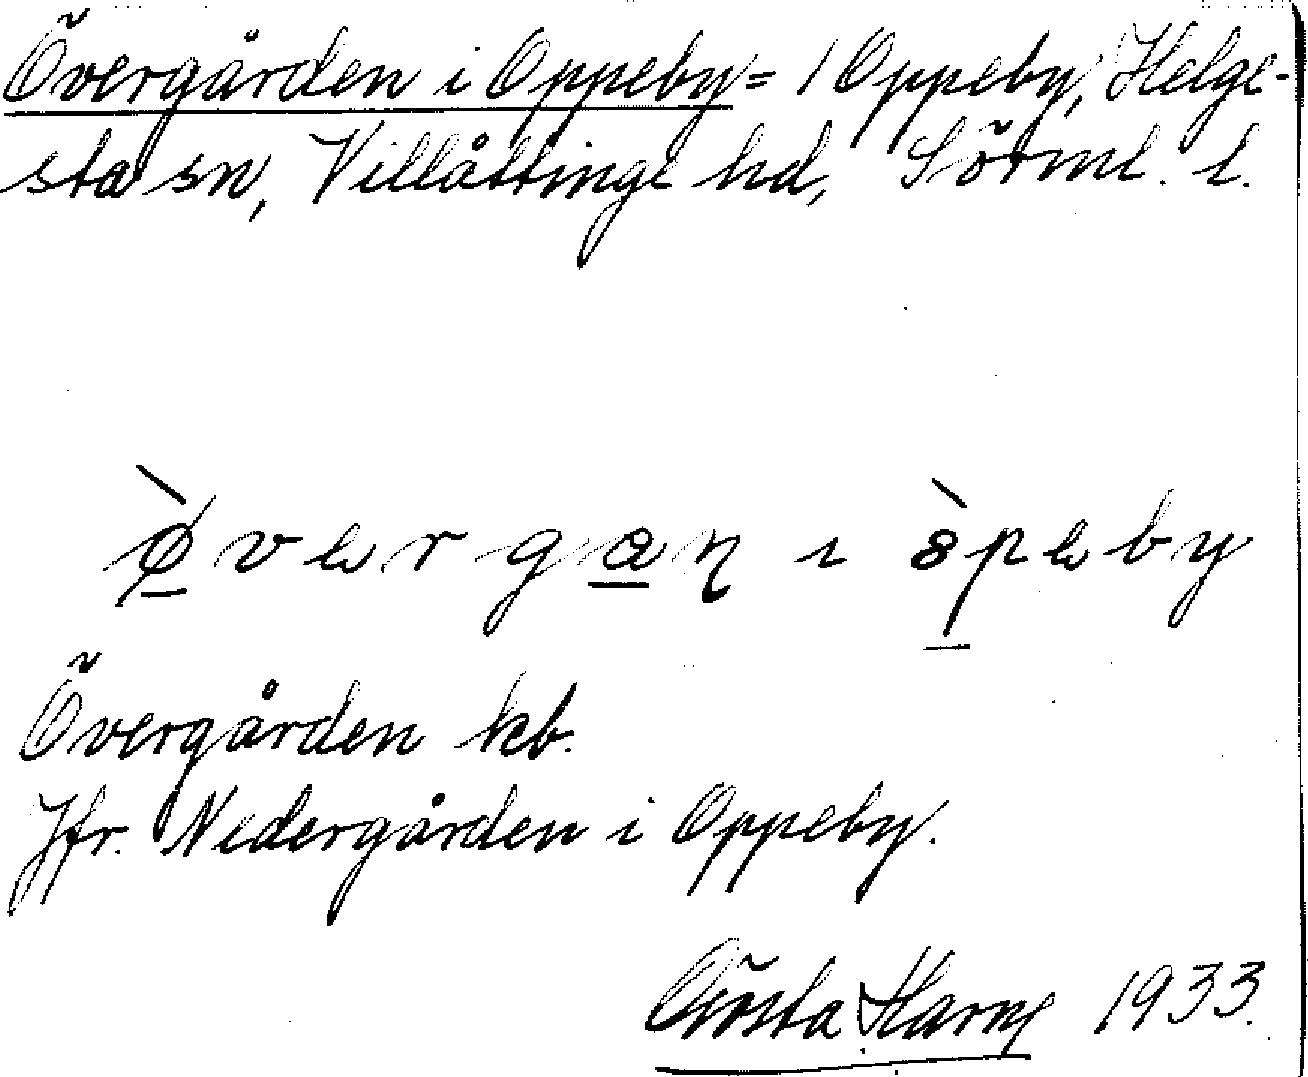 Övergården i Oppeby = 1 Oppeby, Helge-
sta sn, Villåttinge hd, Sörml. l.
ø̀vergan i
Övergården kb.
Jfr. Nedergården i Oppeby.
Gösta Harne 1933.